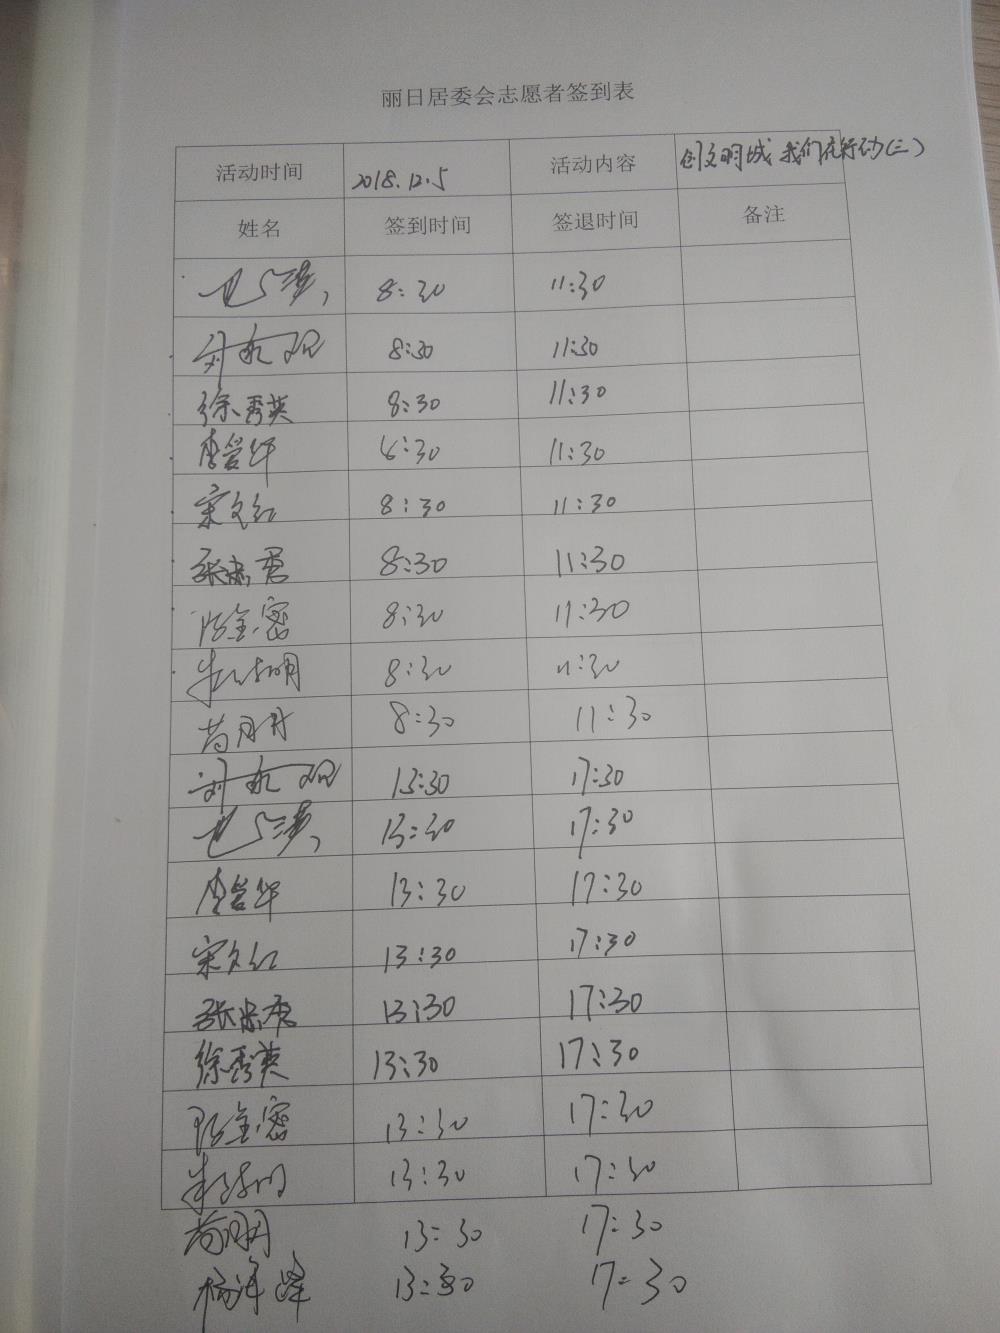 丽日居委会志愿者签到表
活动时间 2018.12.5 活动内容 创文明城 我们在行动(三)
姓名 签到时间 签退时间 备注
8:30 11:30
8:30 11:30
徐秀英 8:30 11:30
李营华 8:30 11:30
宋文红 8:30 11:30
张 君 8:30 11:30
8:30 11:30
朱 明 8:30 11:30
8:30 11:30
13:30 17:30
13:30 17:30
李营华 13:30 17:30
宋文红 13:30 17:30
张 13:30 17:30
徐秀英 13:30 17:30
13:30 17:30
朱 明 13:30 17:30
13:30 17:30
杨 峰 13:30 17:30